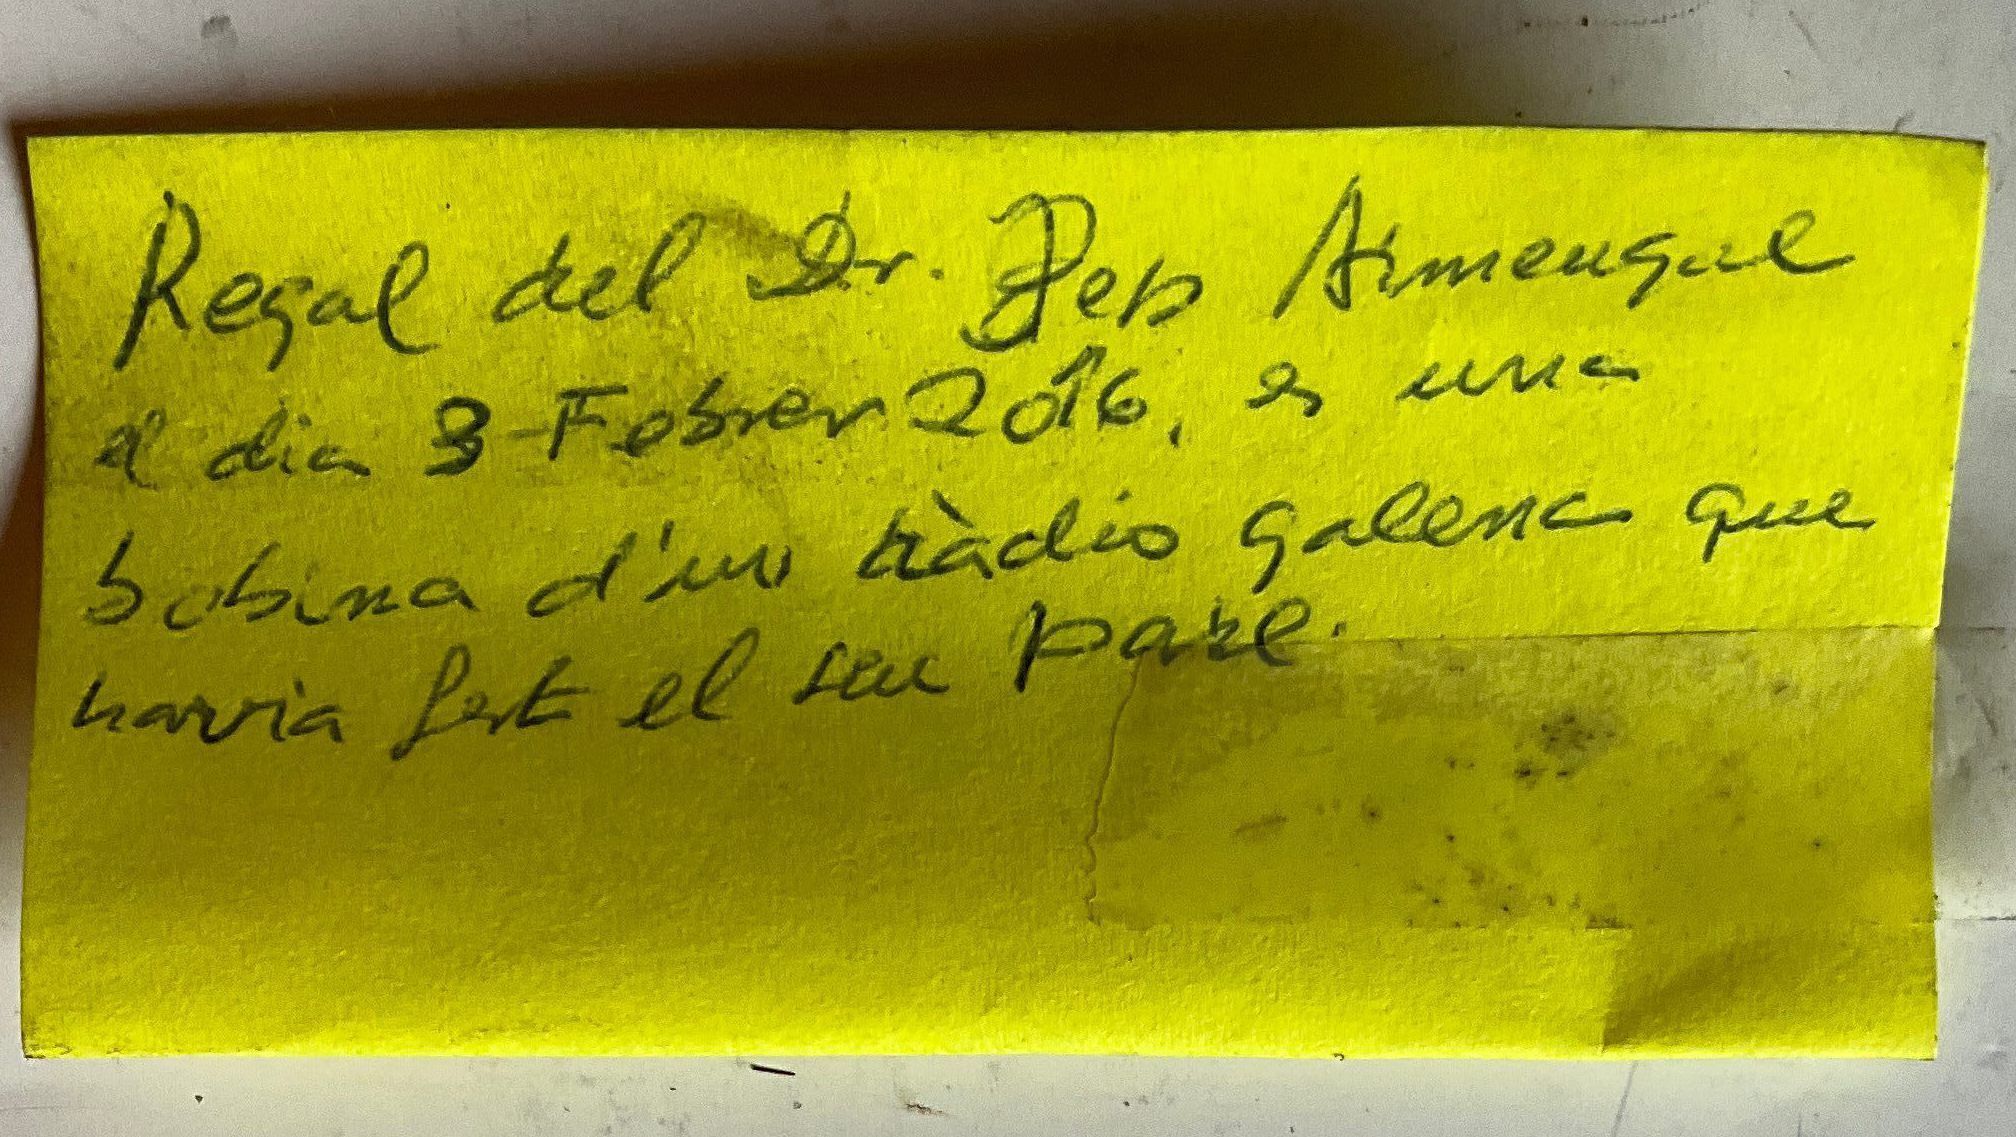 Regal del Dr. Pep Armengue
el dia 3 Febrer 2016, es una
bobina d'un ràdio galena que
havia fet el seu pare.